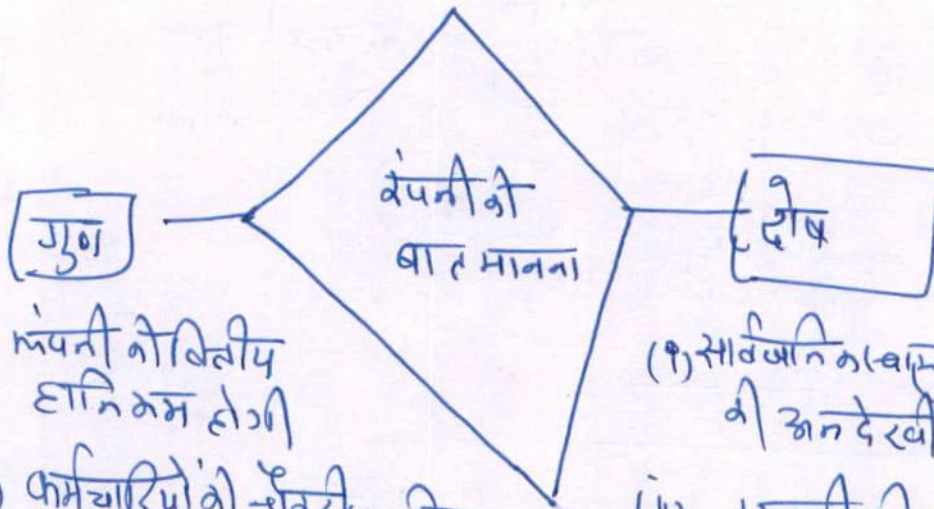 कंपनी की
बात मानना
गुण
कंपनी को वित्तीय
हानि कम होगी
कर्मचारियों की
दोष
(१) सार्वजनिक स्वास्थ्य
की अनदेखी